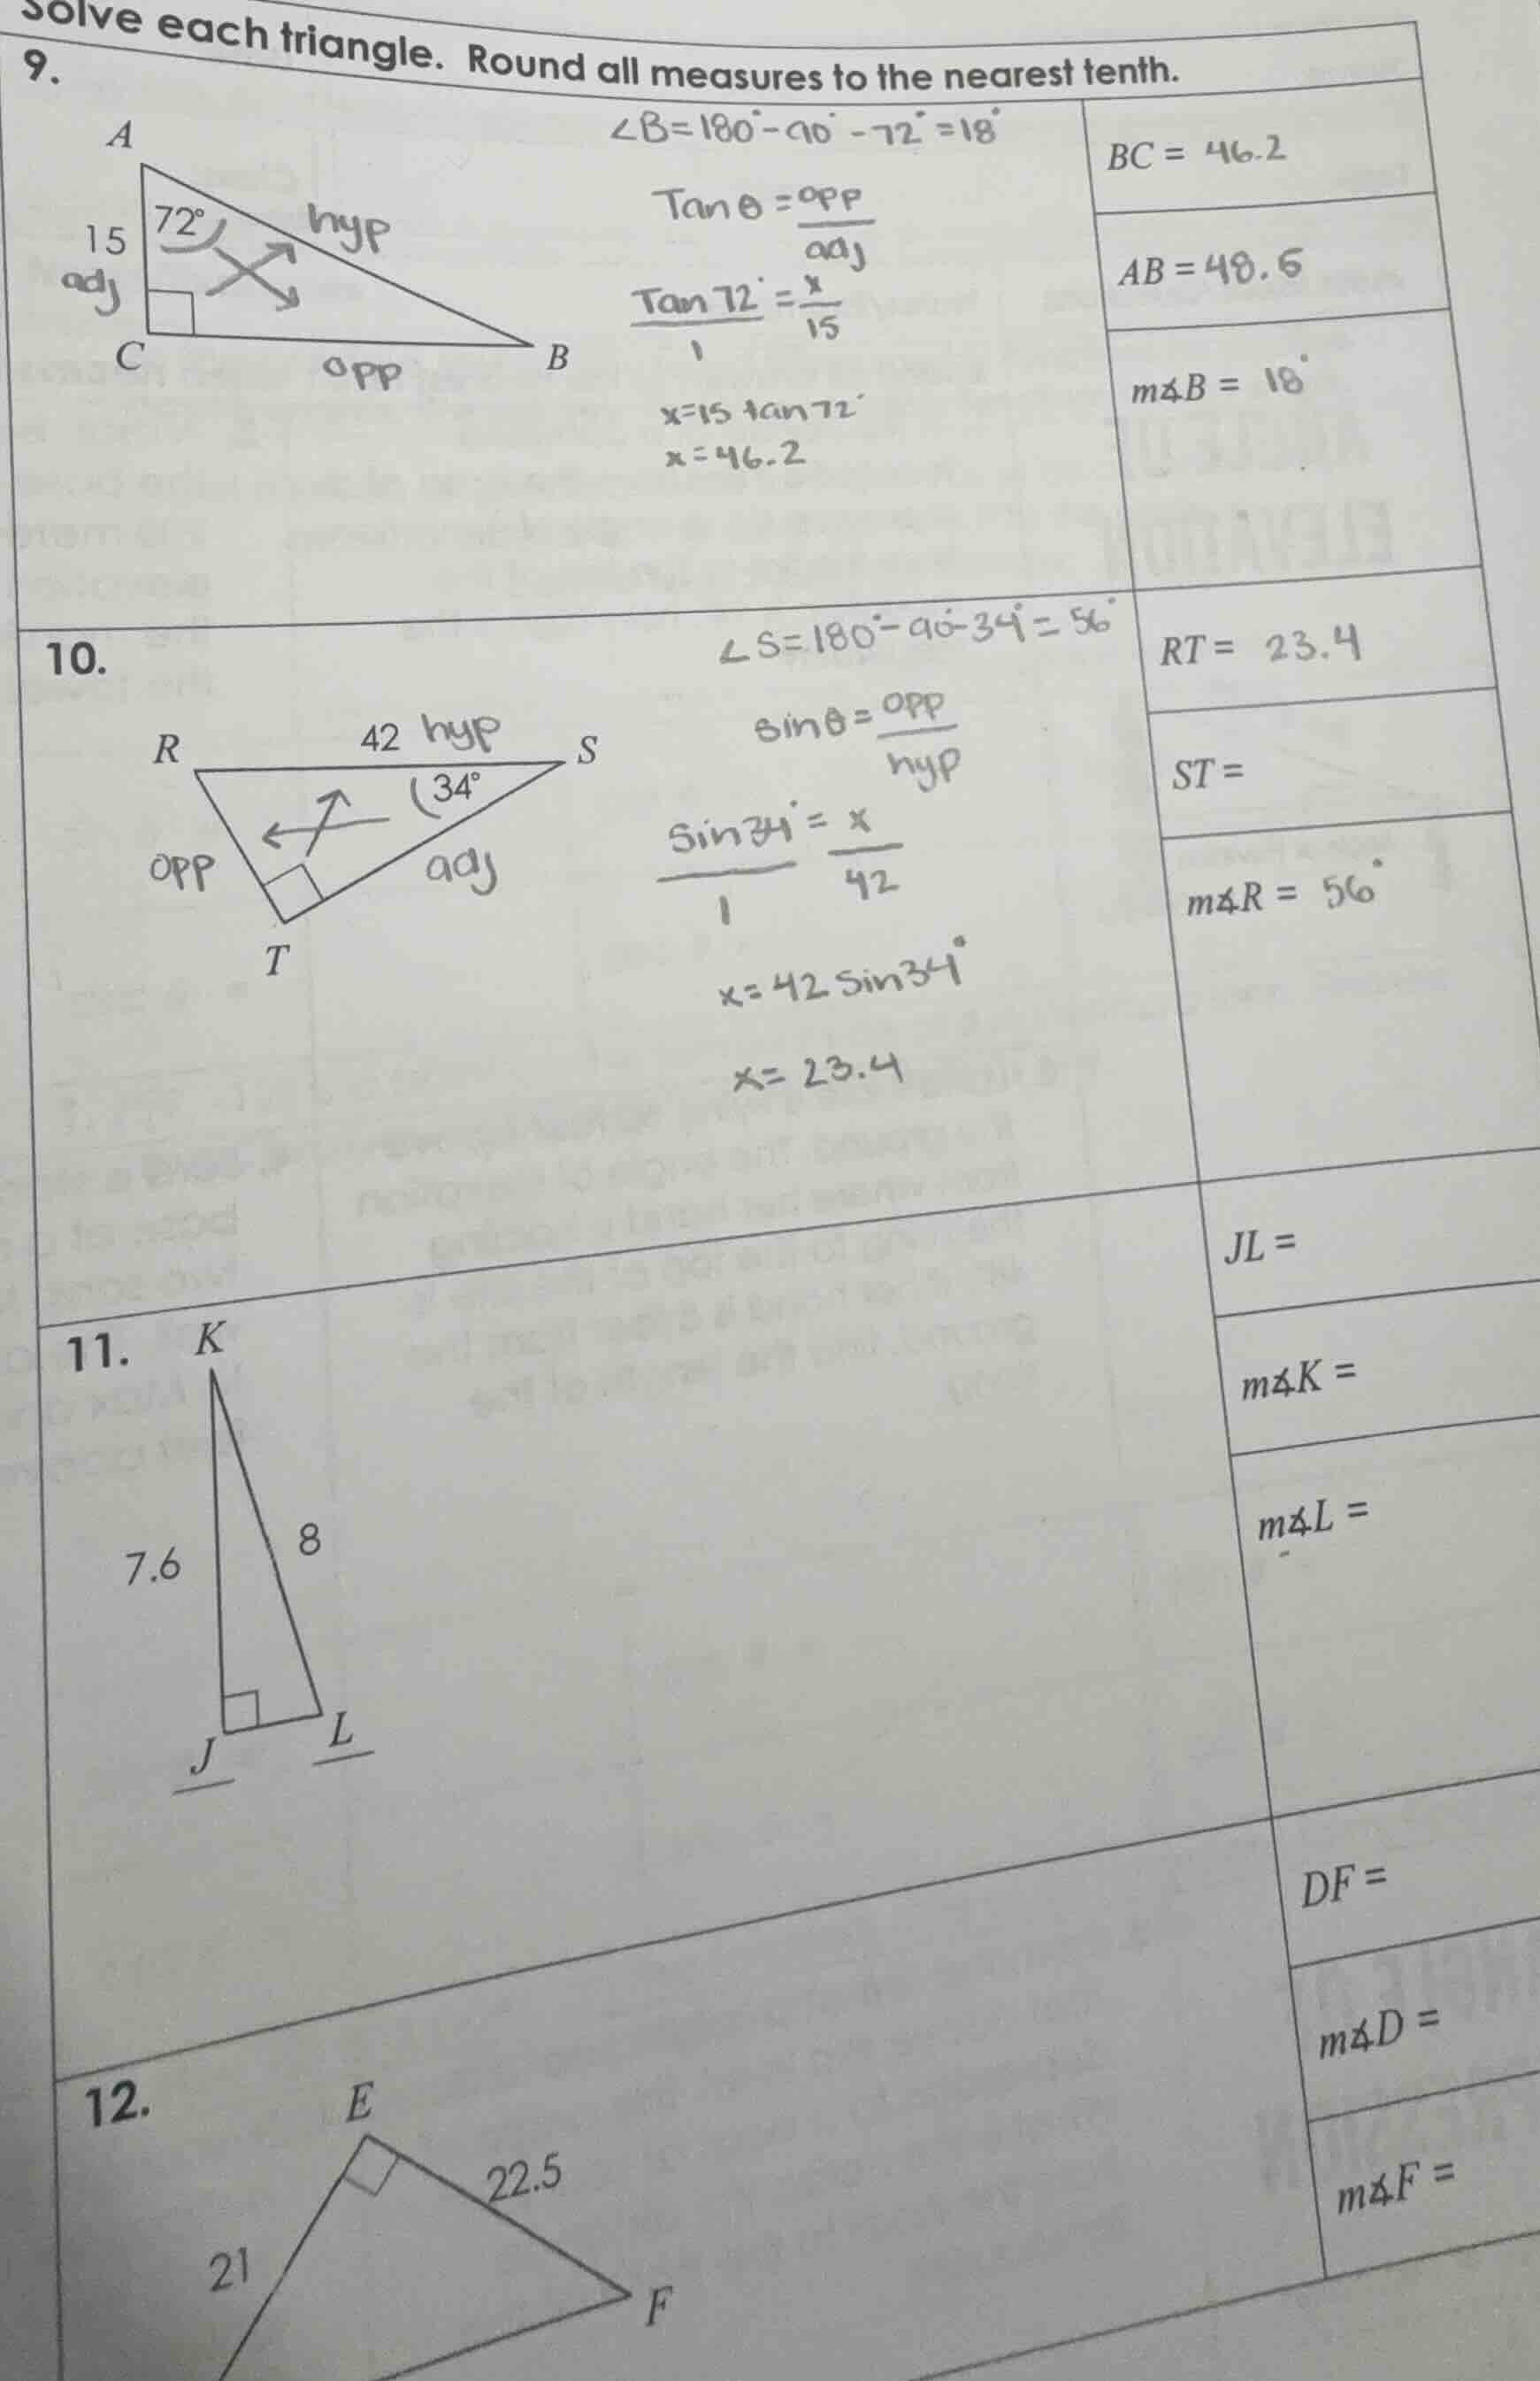 Solve each triangle. Round all measures to the nearest tenth.
9.
A
72°
hyp
15
adj
C
opp
B
∠B=180°-90°-72°=18°
Tan θ = opp/adj
Tan 72°/1 = x/15
x=15 tan 72°
x=46.2
BC = 46.2
AB = 48.5
m∡B = 18°
10.
R
42 hyp
S
34°
opp
adj
T
∠S=180°-90°-34°=56°
sin θ = opp/hyp
Sin 34°/1 = x/42
x=42 Sin 34°
x= 23.4
RT = 23.4
ST =
m∡R = 56°
11.
K
7.6
8
J
L
JL =
m∡K =
m∡L =
12.
E
22.5
21
F
DF =
m∡D =
m∡F =